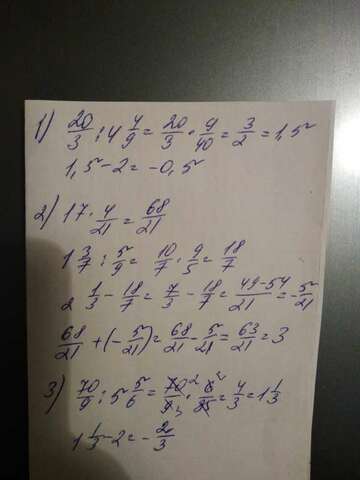 1) 20/3 : 4 4/9 = 20/3 · 9/40 = 3/2 = 1,5
1,5 - 2 = -0,5
2) 17 · 4/21 = 68/21
1 3/7 : 5/9 = 10/7 · 9/5 = 18/7
2 1/3 - 18/7 = 7/3 - 18/7 = 49-54/21 = -5/21
68/21 + (-5/21) = 68/21 - 5/21 = 63/21 = 3
3) 70/9 : 5 5/6 = 70 2/9 3 · 6 2/35 = 4/3 = 1 1/3
1 1/3 - 2 = -2/3